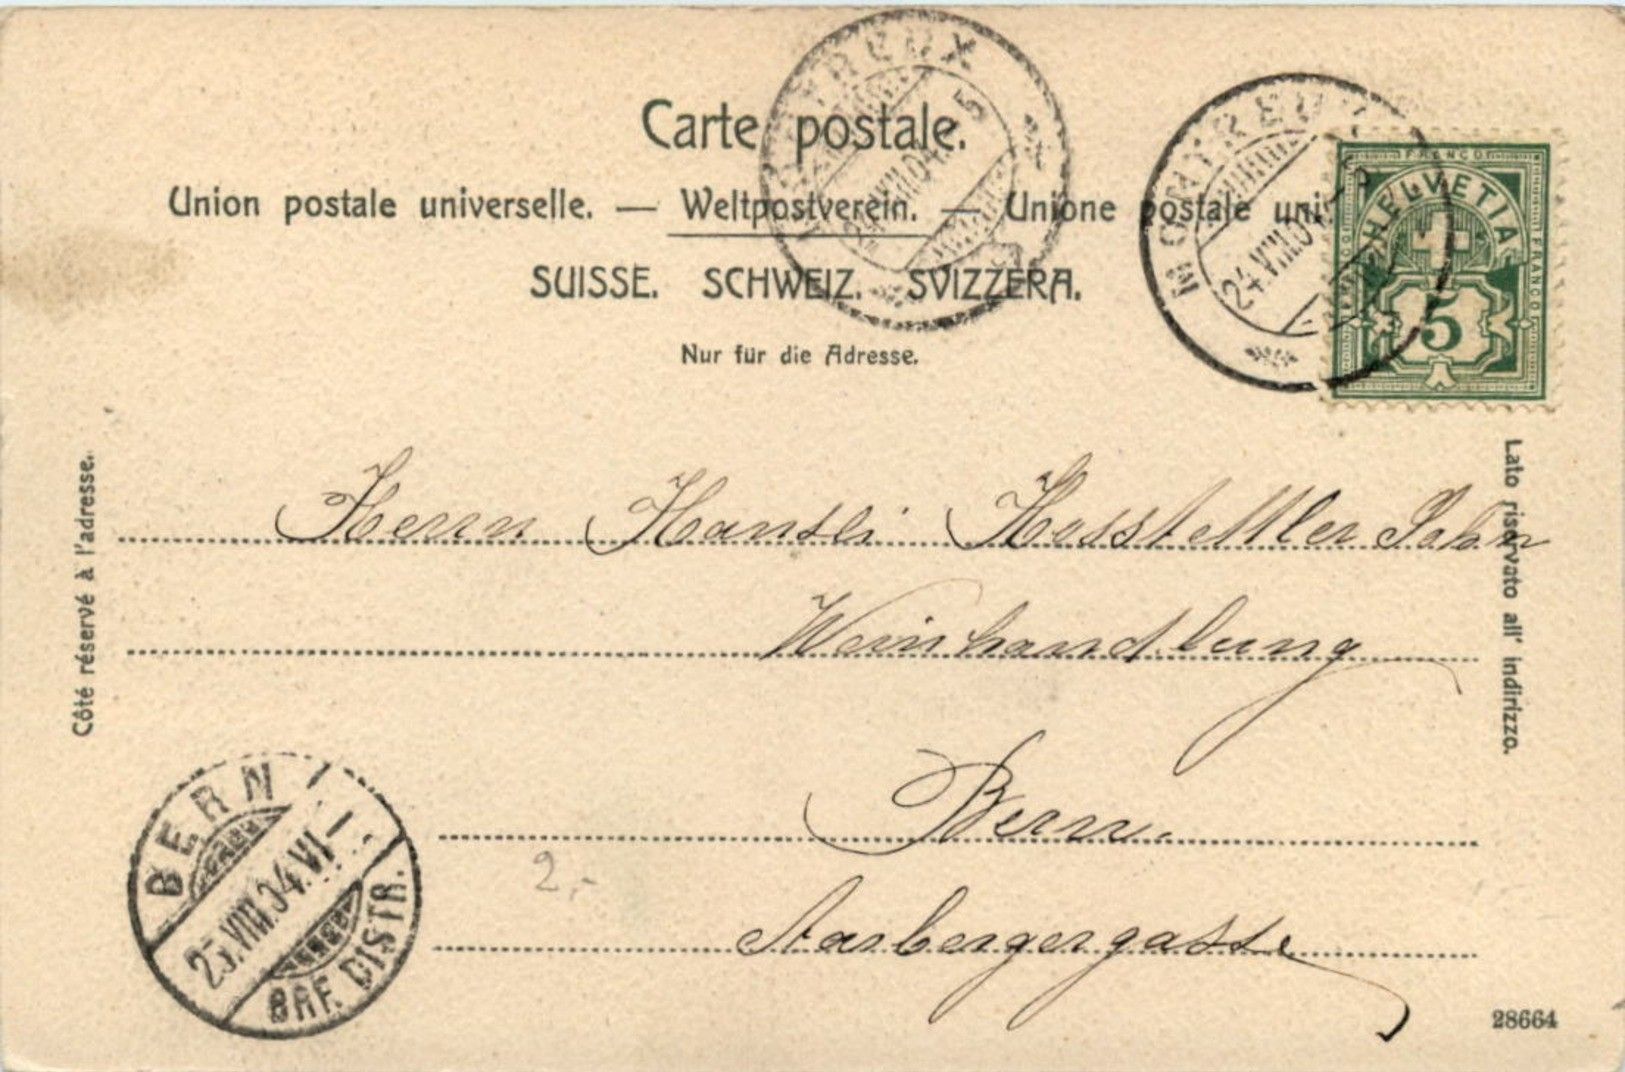 Carte postale.
Union postale universelle. — Weltpostverein. — Unione postale uni
SUISSE. SCHWEIZ. SVIZZERA.
Nur für die Adresse.
MONTREUX
24.VIII.04.
5
MONTREUX
24.VIII.04.
FRANCO
HELVETIA
FRANCO
5
Côté réservé à l'adresse.
Lato riservato all' indirizzo.
Herrn Hansli Hosstettler Sohn
Weinhandlung
Bern.
Aarbergergasse
2,-
BERN
25.VIII.04.VI—
BRF. DISTR.
28664